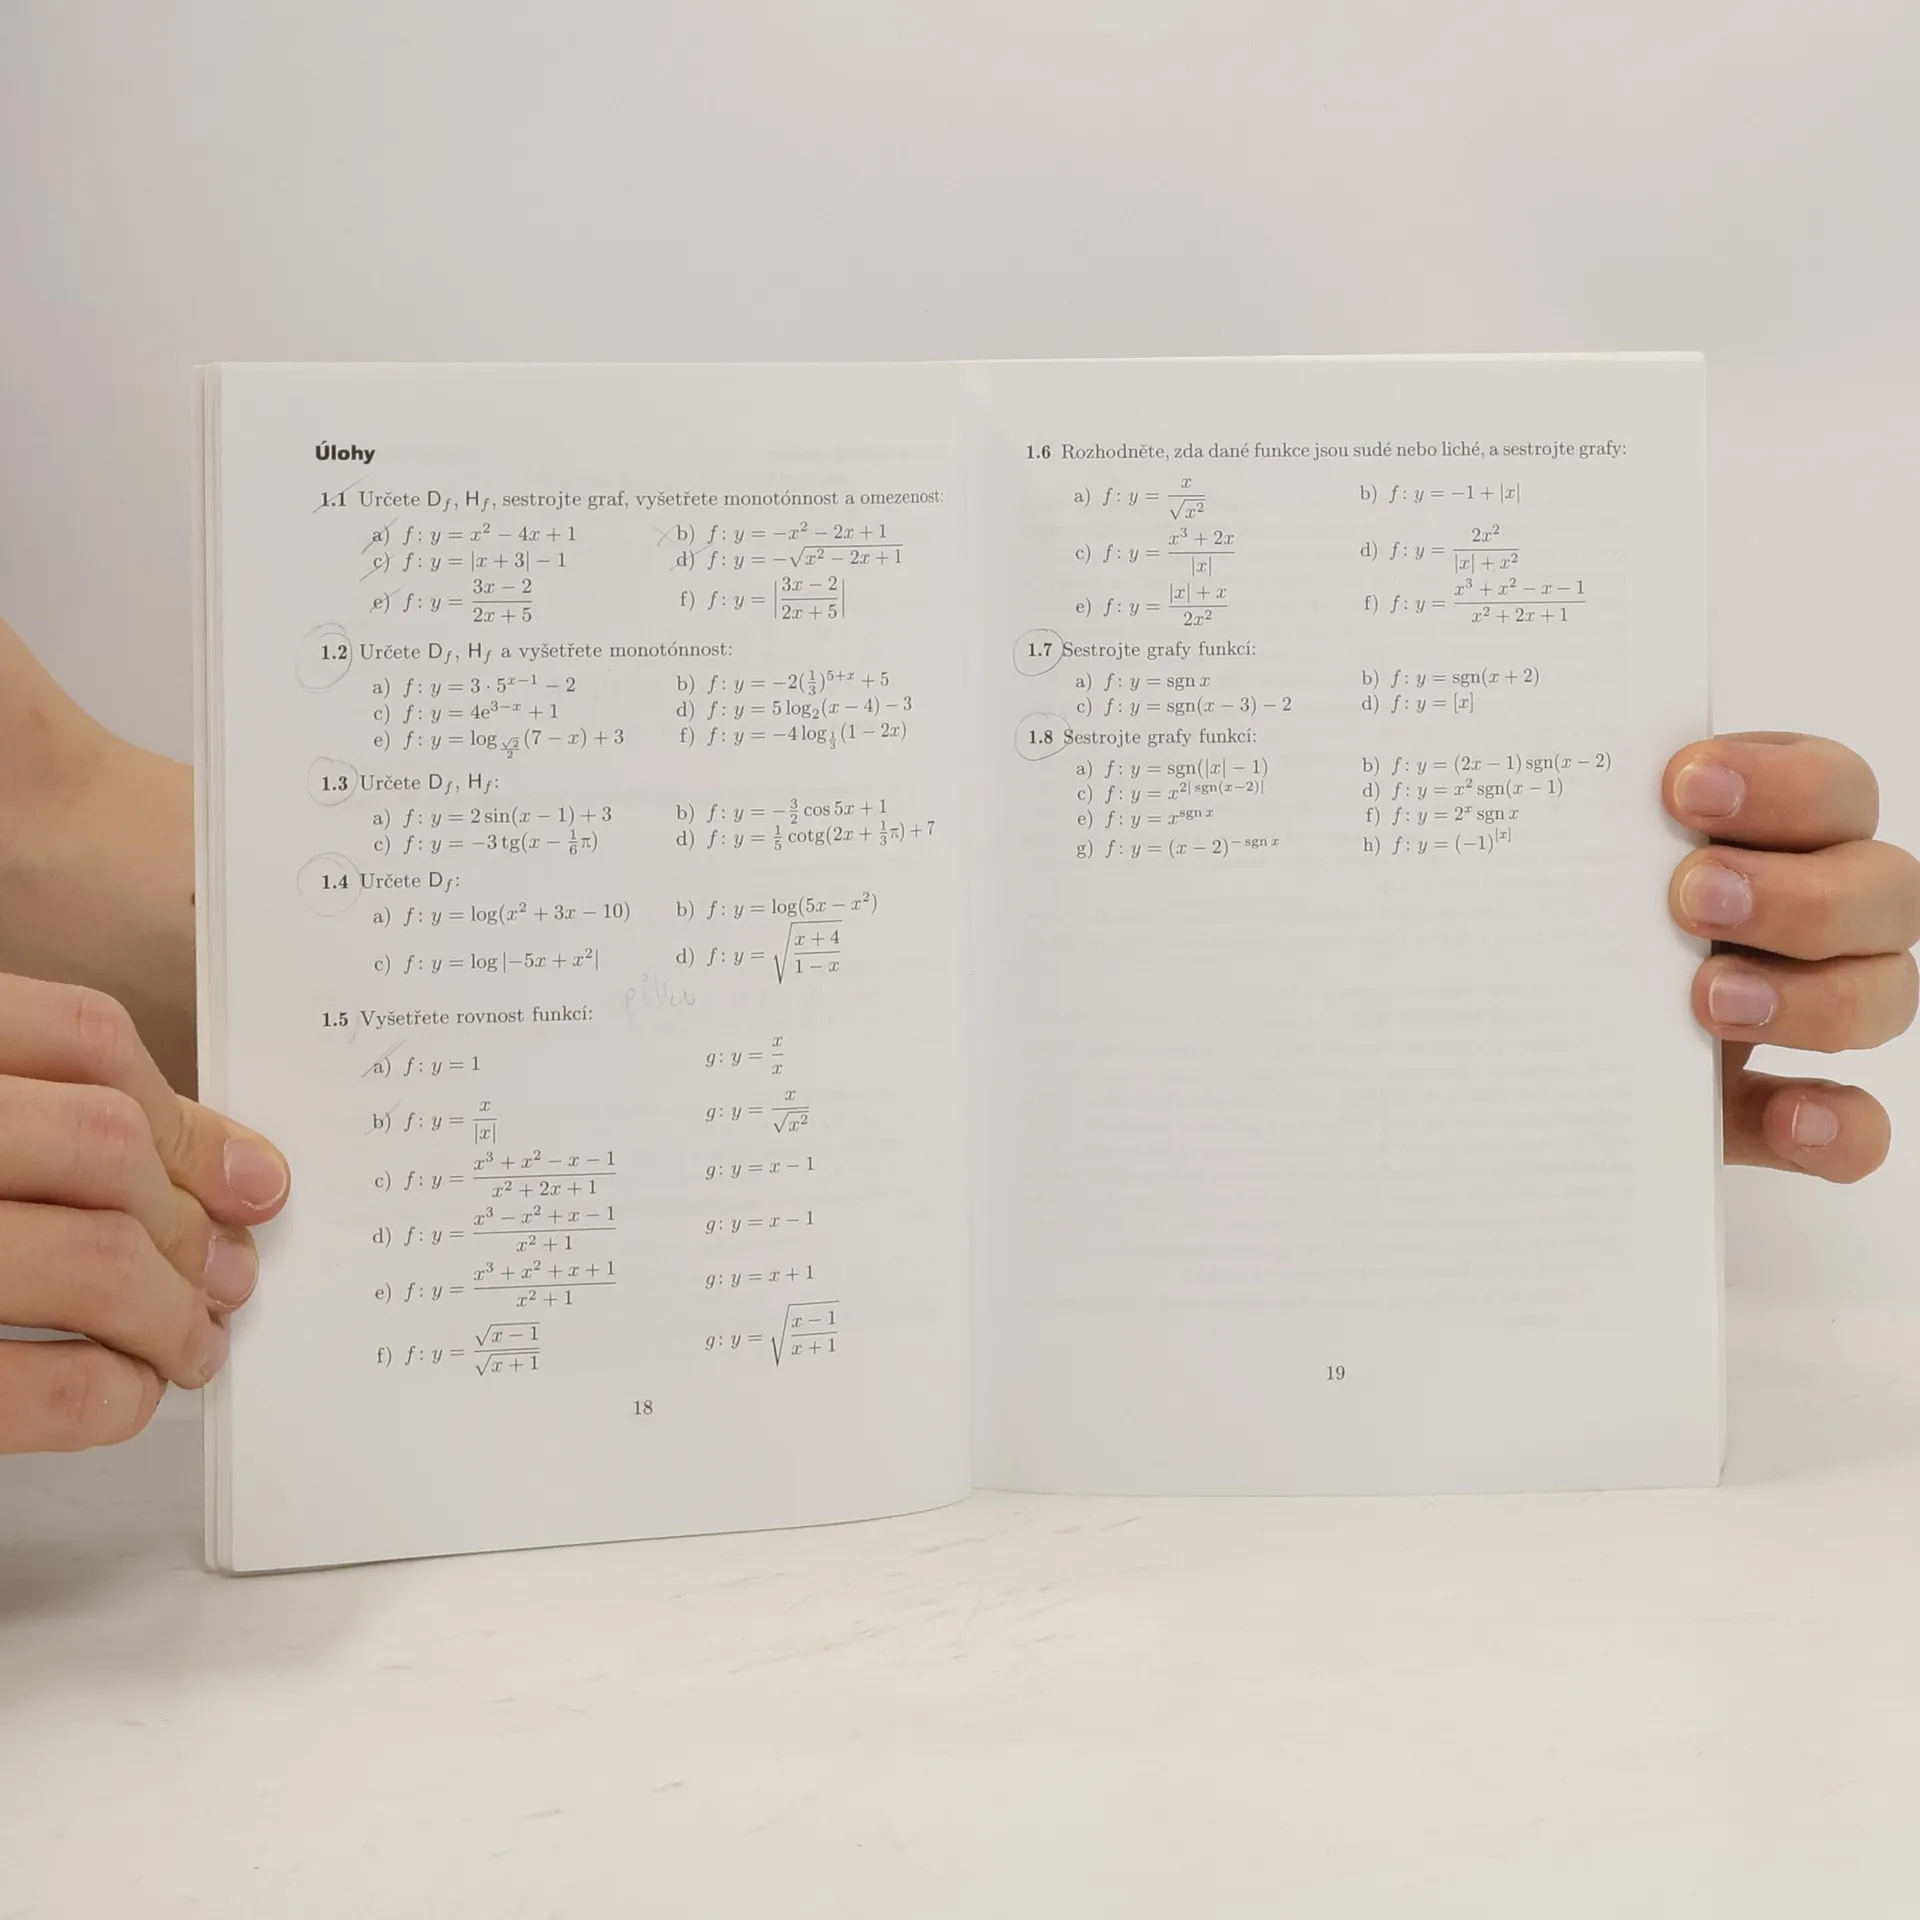 Úlohy
1.1 Určete Df, Hf, sestrojte graf, vyšetřete monotónnost a omezenost:
a) f: y = x² − 4x + 1 b) f: y = −x² − 2x + 1
c) f: y = |x + 3| − 1 d) f: y = −√(x² − 2x + 1)
e) f: y = (3x − 2)/(2x + 5) f) f: y = |(3x − 2)/(2x + 5)|
1.2 Určete Df, Hf a vyšetřete monotónnost:
a) f: y = 3 · 5^(x−1) − 2 b) f: y = −2(1/3)^(5+x) + 5
c) f: y = 4e^(3−x) + 1 d) f: y = 5 log₂(x − 4) − 3
e) f: y = log_(√2/2)(7 − x) + 3 f) f: y = −4 log_(1/3)(1 − 2x)
1.3 Určete Df, Hf:
a) f: y = 2 sin(x − 1) + 3 b) f: y = −3/2 cos 5x + 1
c) f: y = −3 tg(x − 1/6 π) d) f: y = 1/5 cotg(2x + 1/3 π) + 7
1.4 Určete Df:
a) f: y = log(x² + 3x − 10) b) f: y = log(5x − x²)
c) f: y = log |−5x + x²| d) f: y = √((x + 4)/(1 − x))
1.5 Vyšetřete rovnost funkcí:
a) f: y = 1 g: y = x/x
b) f: y = x/|x| g: y = x/√(x²)
c) f: y = (x³ + x² − x − 1)/(x² + 2x + 1) g: y = x − 1
d) f: y = (x³ − x² + x − 1)/(x² + 1) g: y = x − 1
e) f: y = (x³ + x² + x + 1)/(x² + 1) g: y = x + 1
f) f: y = √(x − 1)/√(x + 1) g: y = √((x − 1)/(x + 1))
18
1.6 Rozhodněte, zda dané funkce jsou sudé nebo liché, a sestrojte grafy:
a) f: y = x/√(x²) b) f: y = −1 + |x|
c) f: y = (x³ + 2x)/|x| d) f: y = 2x²/(|x| + x²)
e) f: y = (|x| + x)/(2x²) f) f: y = (x³ + x² − x − 1)/(x² + 2x + 1)
1.7 Sestrojte grafy funkcí:
a) f: y = sgn x b) f: y = sgn(x + 2)
c) f: y = sgn(x − 3) − 2 d) f: y = [x]
1.8 Sestrojte grafy funkcí:
a) f: y = sgn(|x| − 1) b) f: y = (2x − 1) sgn(x − 2)
c) f: y = x^(2| sgn(x−2)|) d) f: y = x² sgn(x − 1)
e) f: y = x^(sgn x) f) f: y = 2^x sgn x
g) f: y = (x − 2)^(− sgn x) h) f: y = (−1)^([x])
19